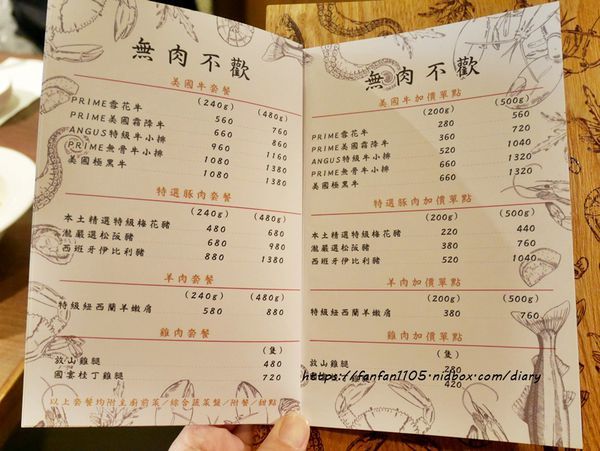 無肉不歡
美國牛套餐
(240g) (480g)
PRIME雪花牛 560 760
PRIME美國霜降牛 660 860
ANGUS特級牛小排 960 1160
PRIME無骨牛小排 1080 1380
美國極黑牛 1080 1380
特選豚肉套餐
(240g) (480g)
本土精選特級梅花豬 480 680
瀧嚴選松阪豬 680 980
西班牙伊比利豬 880 1380
羊肉套餐
(240g) (480g)
特級紐西蘭羊嫩肩 580 880
雞肉套餐
(隻)
放山雞腿 480
國宴桂丁雞腿 720
以上套餐均附主廚前菜/綜合蔬菜盤/附餐/甜點
無肉不歡
美國牛加價單點
(200g) (500g)
PRIME雪花牛 280 560
PRIME美國霜降牛 360 720
ANGUS特級牛小排 520 1040
PRIME無骨牛小排 660 1320
美國極黑牛 660 1320
特選豚肉加價單點
(200g) (500g)
本土精選特級梅花豬 220 440
瀧嚴選松阪豬 380 760
西班牙伊比利豬 520 1040
羊肉加價單點
(200g) (500g)
特級紐西蘭羊嫩肩 380 760
雞肉加價單點
(隻)
放山雞腿 280
420
https://fanfan1105.nidbox.com/diary